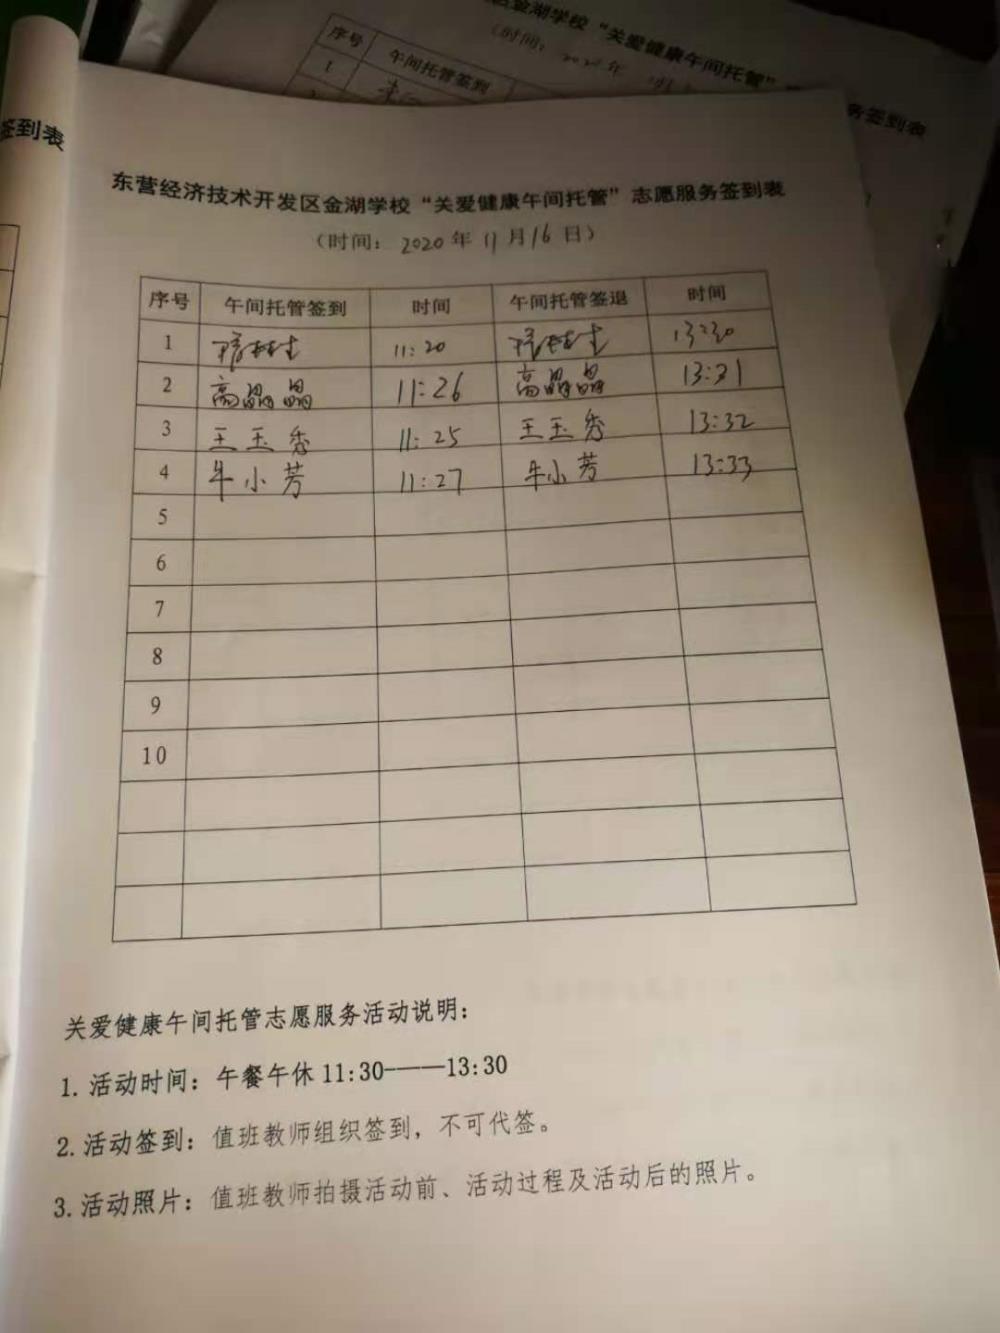 区金湖学校“关爱健康午间托管”
务签到表
(时间: 2020年
序号 午间托管签到
1
签到表
东营经济技术开发区金湖学校“关爱健康午间托管”志愿服务签到表
(时间: 2020年11月16日)
序号 午间托管签到 时间 午间托管签退 时间
1 11:20 13:30
2 高晶晶 11:26 高晶晶 13:31
3 王玉秀 11:25 王玉秀 13:32
4 牛小芳 11:27 牛小芳 13:33
5
6
7
8
9
10
关爱健康午间托管志愿服务活动说明:
1.活动时间: 午餐午休11:30———13:30
2.活动签到: 值班教师组织签到, 不可代签。
3.活动照片: 值班教师拍摄活动前、活动过程及活动后的照片。